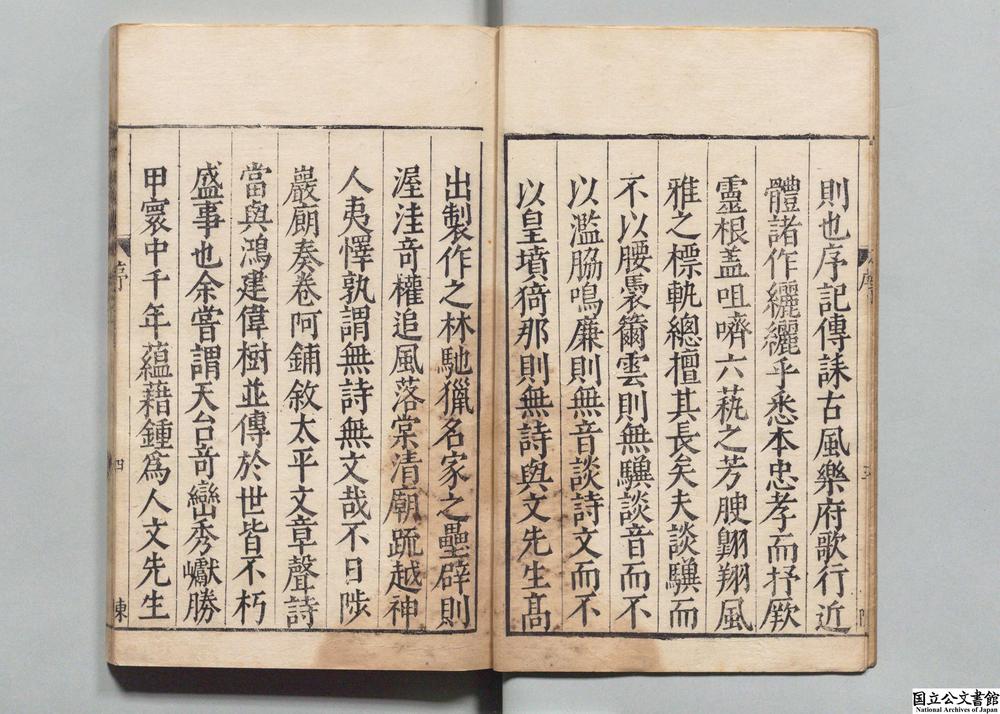 則也序記傳誄古風樂府歌行近
體諸作纚纚乎悉本忠孝而抒厥
靈根盖咀嚌六蓺之芳腴翺翔風
雅之標軌總擅其長矣夫談驥而
不以腰褭籋雲則無驥談音而不
以濫脇鳴廉則無音談詩文而不
以皇墳猗那則無詩與文先生髙
出製作之林馳獵名家之壘辟則
渥洼奇權追風落棠清廟疏越神
人夷懌孰謂無詩無文哉不日陟
巖廊奏卷阿鋪敘太平文章聲詩
當與鴻建偉樹並傳於世皆不朽
盛事也余嘗謂天台竒巒秀巘勝
甲寰中千年蘊藉鍾爲人文先生
序
四
東
国立公文書館
National Archives of Japan